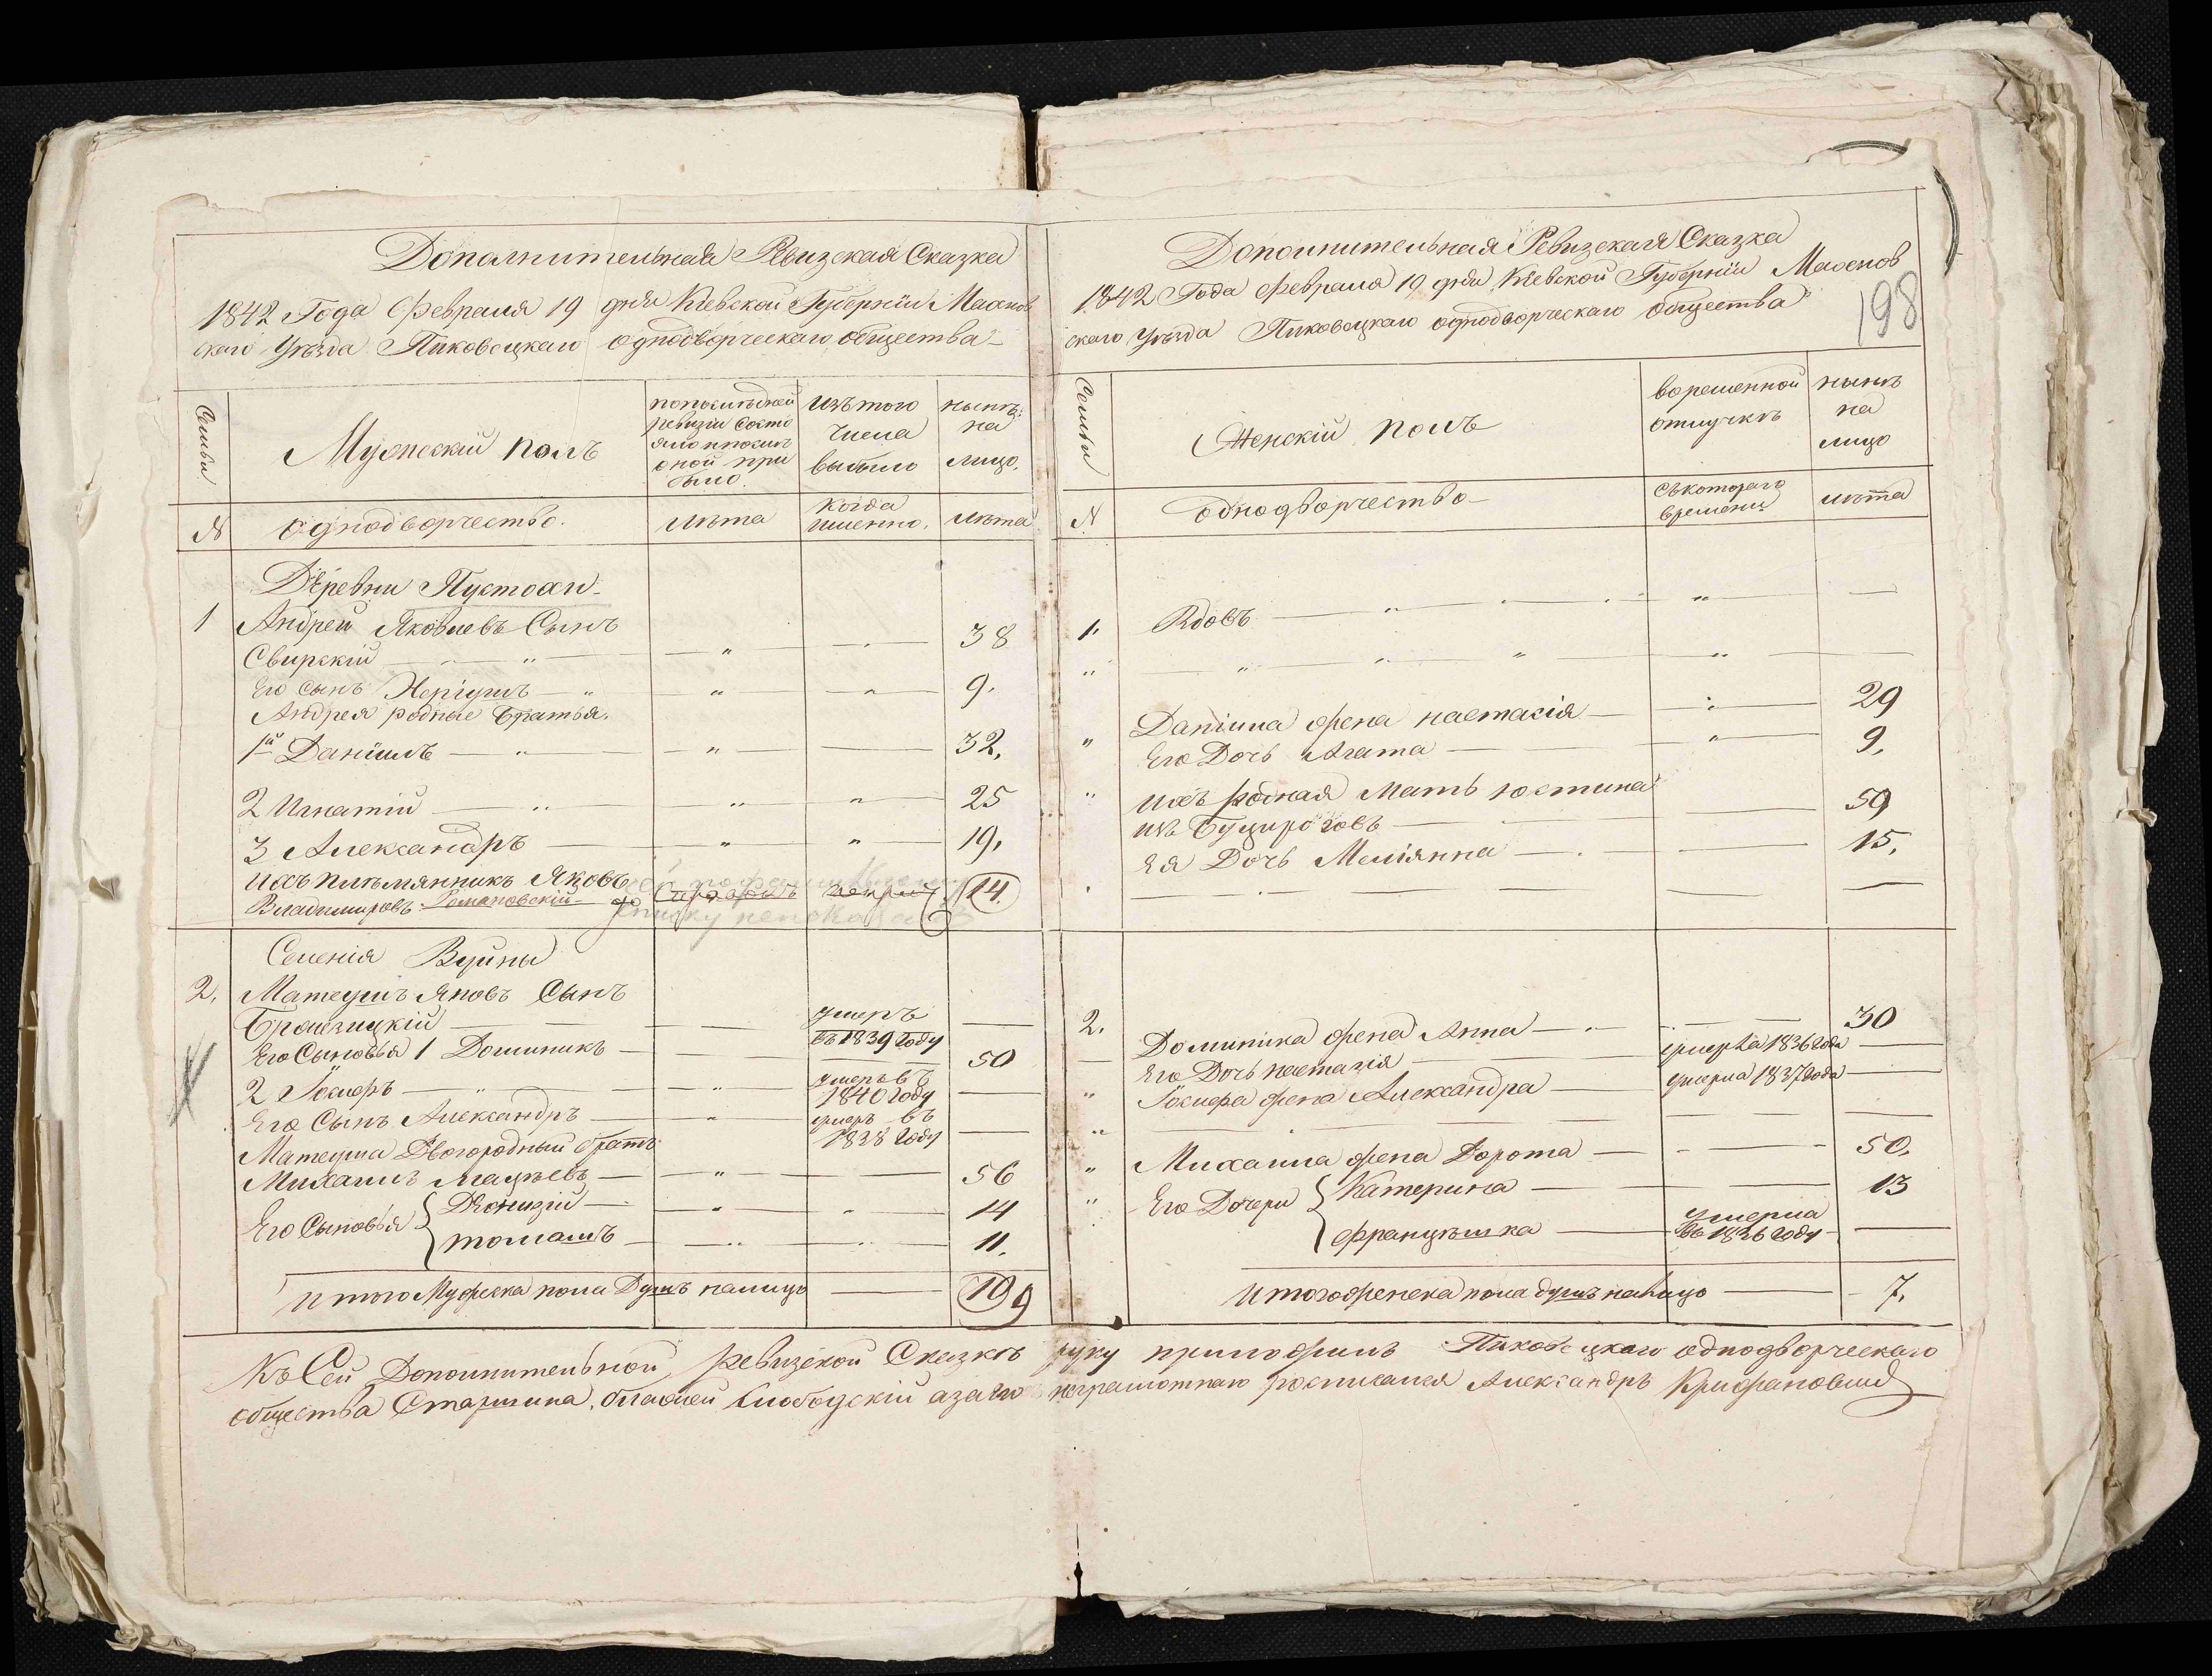 Дополнительная Ревизская Сказка
1842 Года Февраля 19 дня Кіевской Губерніи Махнов
скаго Уѣзда Пиковецкаго однодворческаго общества
Семьи
Мужескій полъ
по послѣдней
ревизіи состо
яло и послѣ
оной при
было.
изъ того
числа
выбыло
нынѣ
на
лицо.
№
однодворчество.
лѣта
когда
именно.
лѣта
Деревни Пустохи
1 Андрей Яковлевъ Сынъ
Свирскій 38
Его сынъ 9.
Андрея родные братья.
1й Даніилъ 32.
2 Игнатій 25
3 Александръ 19.
Ихъ племянникъ Яковъ
Владимировъ Романовскій 14.
Селенія Вуйны
2. Матеушъ Яновъ Сынъ
умеръ
въ 1839 году
Его Сыновья 1 Доминикъ 50
2 умеръ въ
1840 году
Его Сынъ Александръ умеръ въ
1838 году
Матеуша Двоюродный братъ
Михаилъ Мацѣевъ 56
Его Сыновья Діонизій 14
томашъ 11.
Итого Мужеска пола Душъ налицо 10 9
Дополнительная Ревизская Сказка
1842 Года Февраля 19 дня Кіевской Губерніи Махнов
скаго Уѣзда Пиковецкаго однодворческаго общества
198
Семьи
Женскій полъ
во временной
отлучкѣ
нынѣ
на
лицо
№
однодворчество
съ котораго
времени
лѣта
1. Вдовъ
Даніила жена настасія 29
Его Дочь Агата 9.
Ихъ родная Мать юстина
изъ 59
Ея Дочь Меліянна 15.
2. Доминика жена Анна 30
Его Дочь настазія умерла 1836 года
жена Александра умерла 1837 года
Михаила жена Дорота 50.
Его Дочери Катерина 13
францѣшка умерла
въ 1836 году
Итого женска пола душъ налицо 7.
Къ Сей Дополнительной ревизской Сказкѣ руку приложилъ Пиковецкаго однодворческаго
общества Старшина. Слободскій а за его неграмотнаго росписался Александръ